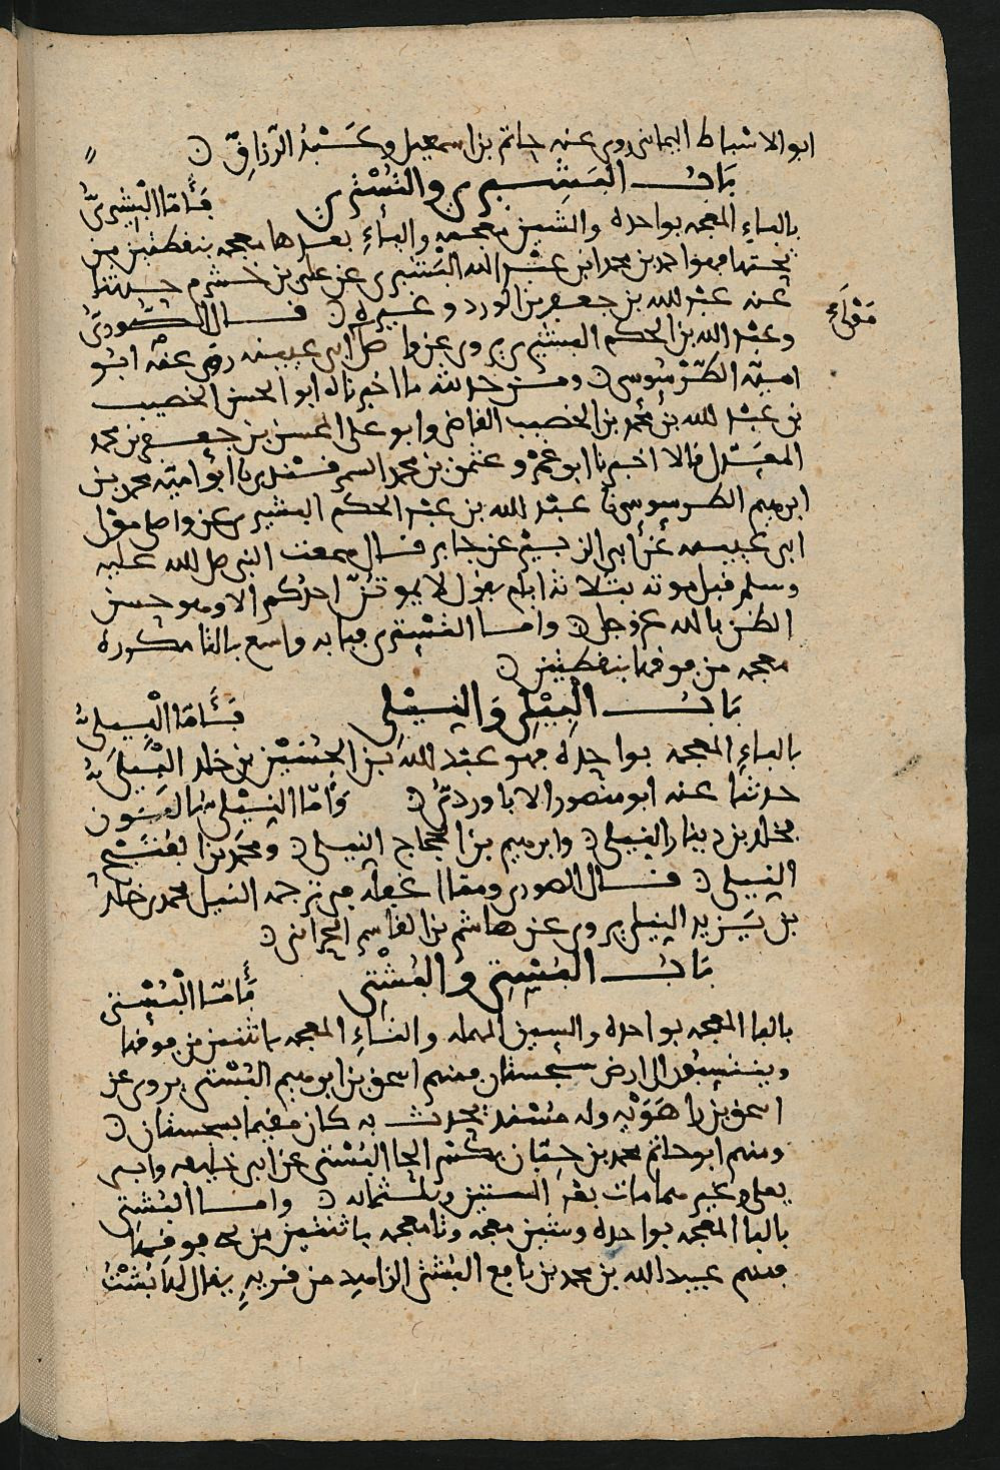 ابو الاسباط اليمانى روى عنه حاتم بن اسمعيل وعَبْدُ الرّزاقِ ۞
بَابُ البَشِيرى والتُسْتَرى
فَأَمّا الْبَشِيرىّ
بالباءِ المعجمه بواحده والشين معجمه والياءِ بعدها معجمه بنقطتين من
تحتها فهو احمد بن محمد ابن عبْد الله البَشيرى عن على بن خشرم حدثنا
عنه عبْد الله بن جعفر بن الورد وغيره ۞ قال الصُّورىّ
وعبْد الله بن الحكم البشيرى يروى عن واصل ابى عيينه روى عنْه ابو
مَوْلَى
اميّه الطَّرْسُوسى ۞ ومن حديثه ما اخبرناه ابو الحسن الخصيب
بن عبْد الله بن محمد بن الخصيب القاضى وابو على الحسن بن جعفر بن محمد
المعَدّل قالا اخبرنا ابو عَمْرو عثمن بن محمد السمرقندى نا ابو اميّه محمد بن
ابرهيم الطرسوسى نا عبْد الله بن عبْد الحكم البشيرى عن واصل مولى
ابى عيينه عن ابى الزبير عن جابر قال سمعت النبى صلى الله عليه
وسلم قبل موته بثلاثة ايام يقول لا يموتَنّ احدُكم الا وهو حسن
الظن بالله عز وجل ۞ وامّا التُسْتَرى فبابه واسع بالتا مكرره
معجمه من فوقها بنقطتين ۞
بَابُ البِيْلِى وَالنِيْلِى
فَأَمّا الْبِيلىُّ
بالباءِ المعجمه بواحده فهو عبْد الله بن الحُسَيْن بن خلد البْيلىّ
حدثنا عنه ابو منصور الاباوردىّ ۞ وَأَمّا النِيْلىّ بالنون
مخلد بن دينار النيلى ۞ وابرهيم بن الحجاج النيلى ۞ ومحمد بن
النيلى ۞ قال الصورى ومما اغفله فى ترجمه النيلى محمد بن خلد
بن يَزيد النيلى يروى عن هاشم بن القاسم الحرانى ۞
بَابُ البُسْتِى والبُشْتِى
فَأَمّا البُسْتى
بالبا المعجمه بواحده والسين المهمله والتاءِ المعجمه باثنتين من فوقها
وينتسبُون الى ارض سجستان منهم اسحق بن ابرهيم البُسْتى يروى عن
اسحق بن راهَوَيْه وله مسْند يحدث به كان مقيما بسجستان ۞
ومنهم ابو حاتم محمد بن حبّان يكْثر البُسْتى عن ابى خليفه وابى
يعلى وغيرهما مات بعْد الستين وثلثمائه ۞ وامّا البُشتى
بالبا المعجمه بواحده وشين معجمه وتا معجمه باثنتين من فوقها
فمنهم عبيد الله بن محمد بن نافع البُشتى الزاهد من قريهٍ يقال لها بُشْتُ